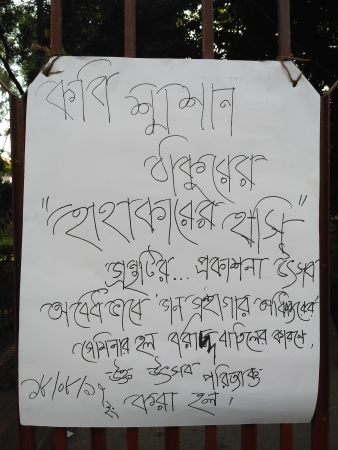 কবি শ্মশান
ঠাকুরের
"হোহাকারের হাসি"
গ্রন্থটির... প্রকাশনা উৎসব
অবৈধভাবে গন গ্রন্থাগার অধিদপ্তরের
সেমিনার হল বরাদ্দ বাতিলের কারণে,
উক্ত উৎসব পরিত্যক্ত
ইং করা হল,